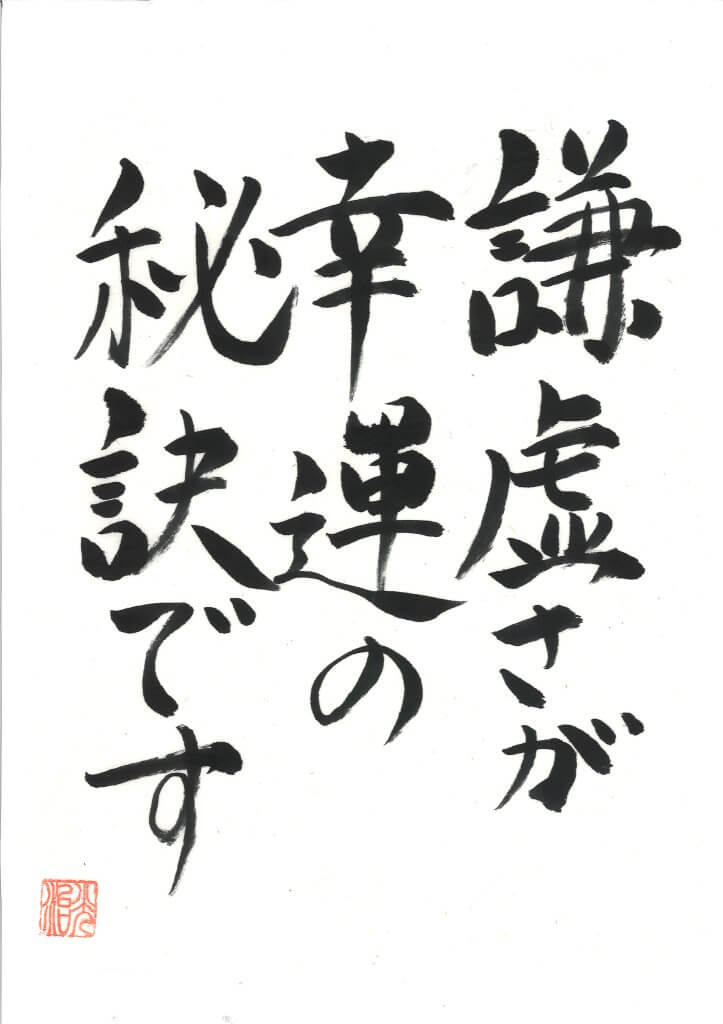 謙虚さが
幸運の
秘訣です